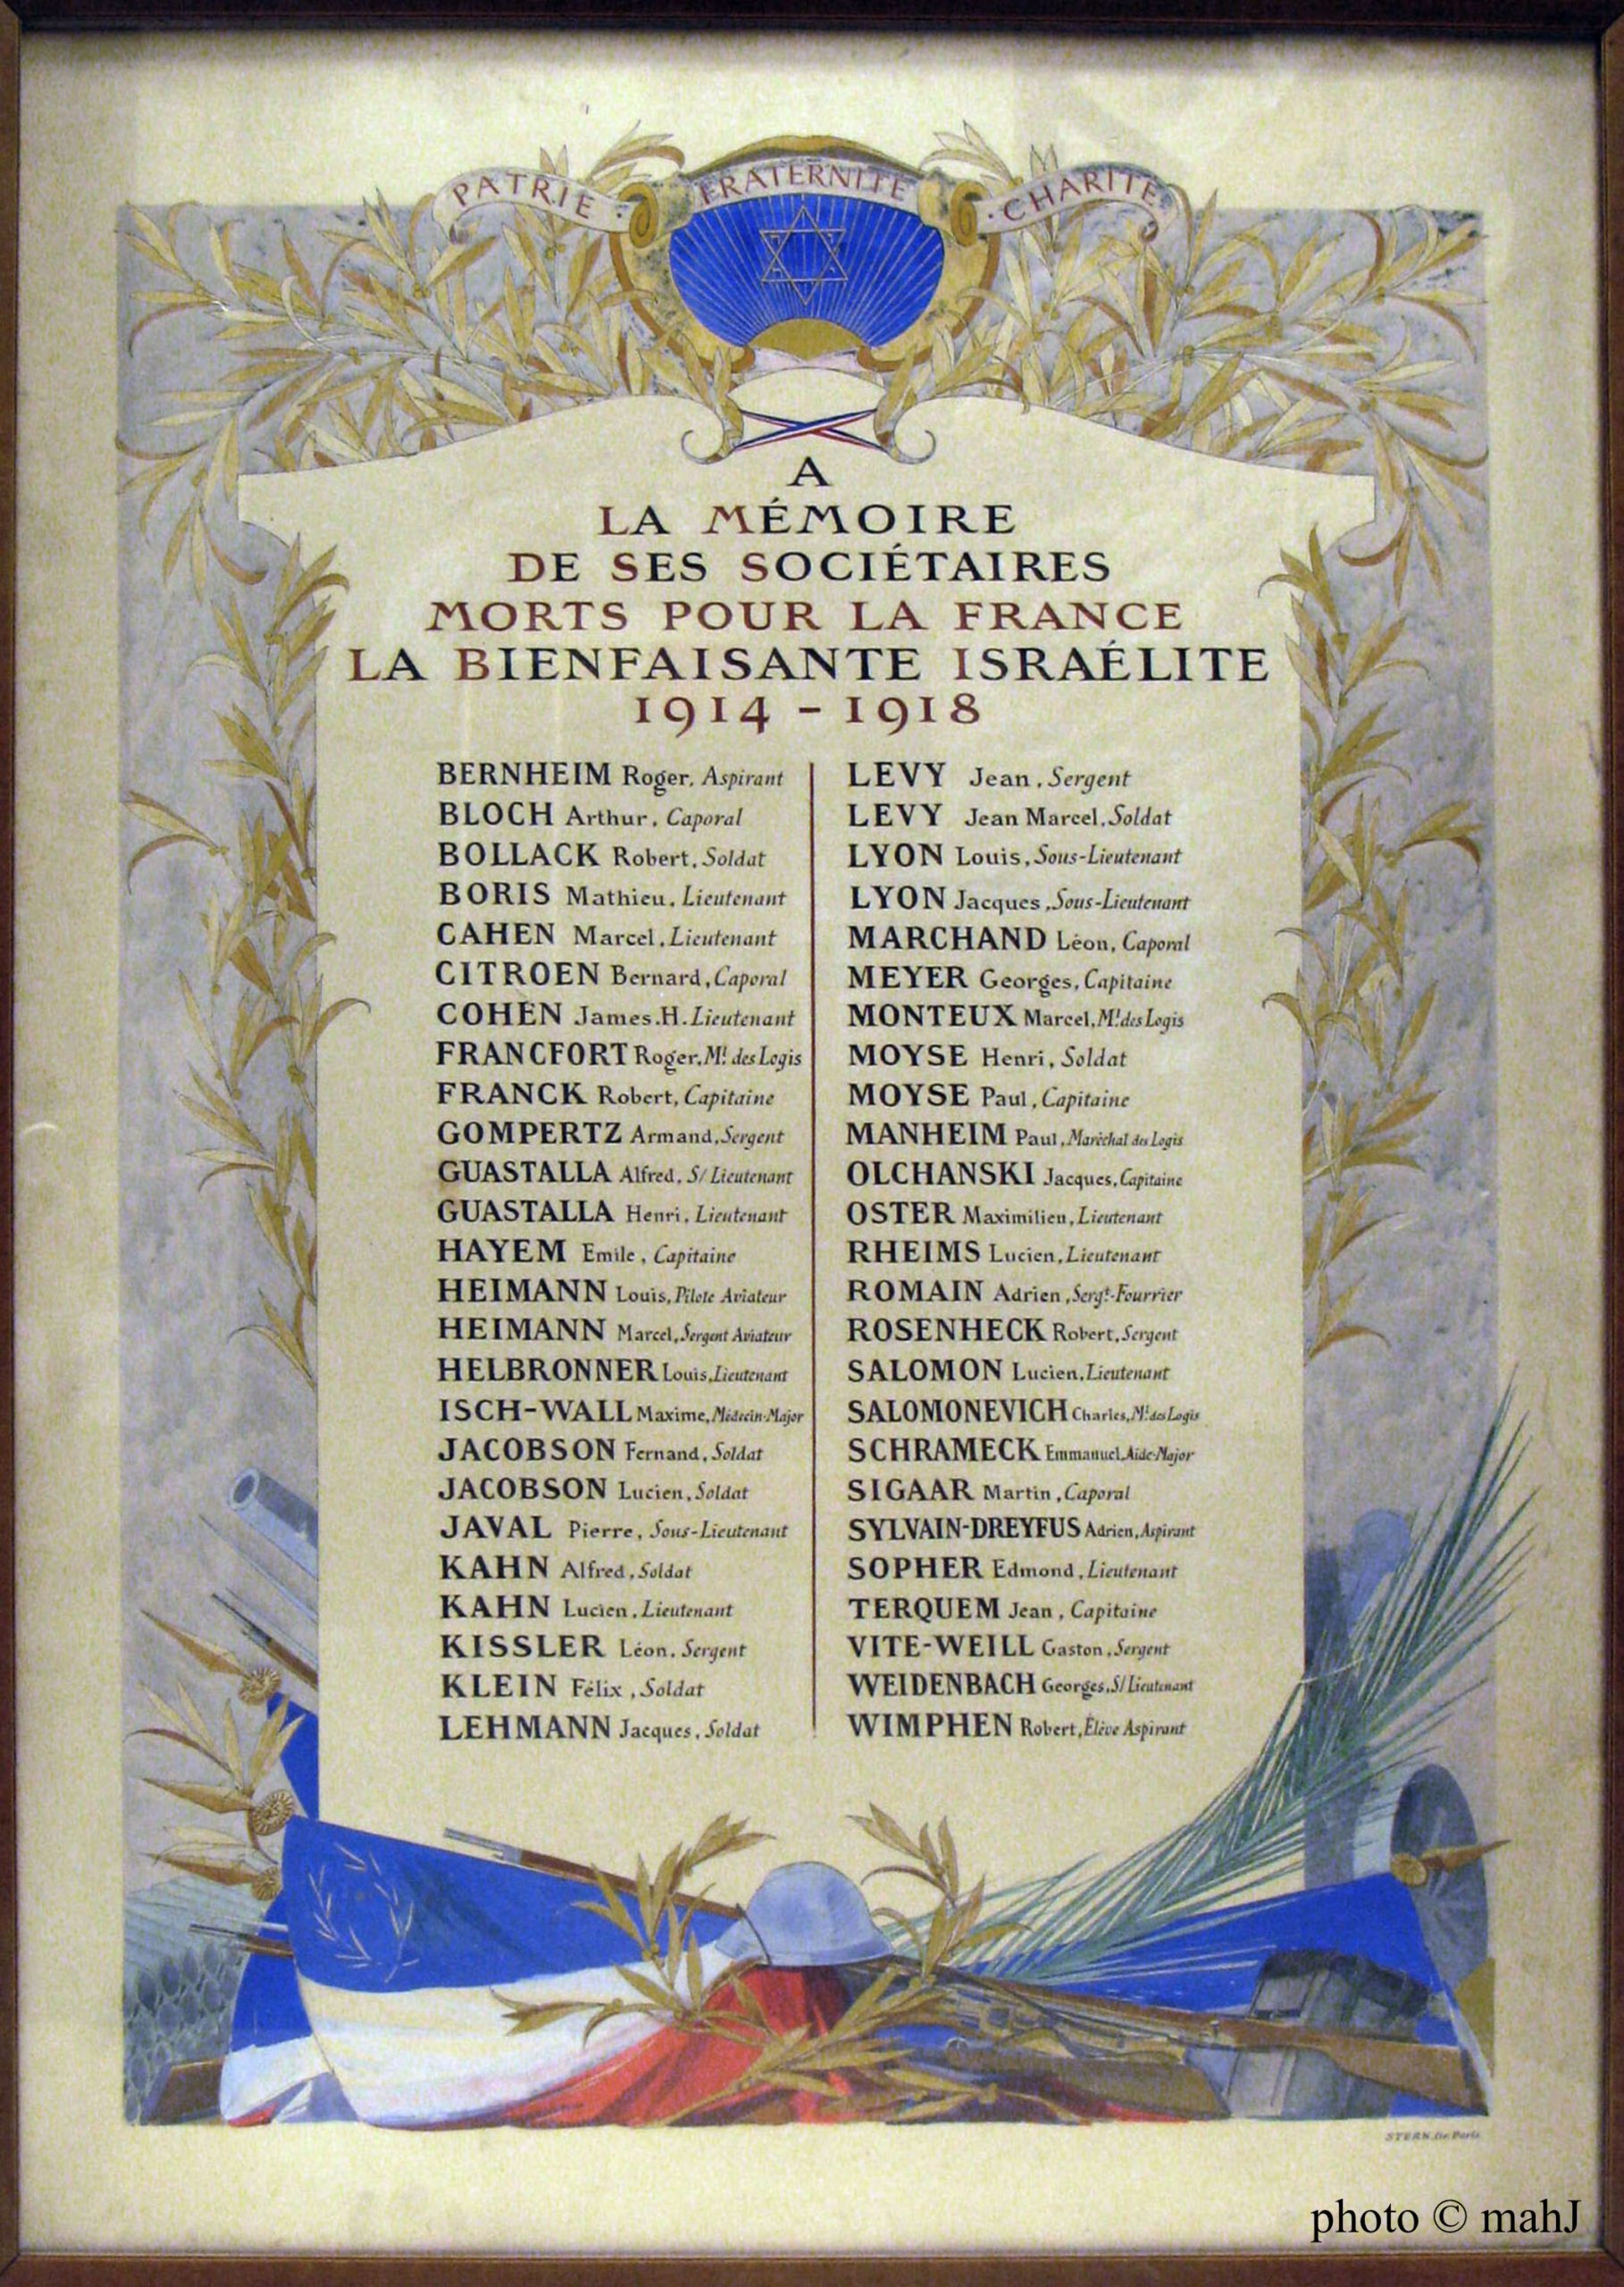 PATRIE · FRATERNITE · CHARITE
A
LA MÉMOIRE
DE SES SOCIÉTAIRES
MORTS POUR LA FRANCE
LA BIENFAISANTE ISRAÉLITE
1914 - 1918
BERNHEIM Roger, Aspirant
BLOCH Arthur, Caporal
BOLLACK Robert, Soldat
BORIS Mathieu, Lieutenant
CAHEN Marcel, Lieutenant
CITROEN Bernard, Caporal
COHEN James.H. Lieutenant
FRANCFORT Roger, Mᵗ des Logis
FRANCK Robert, Capitaine
GOMPERTZ Armand, Sergent
GUASTALLA Alfred, S/ Lieutenant
GUASTALLA Henri, Lieutenant
HAYEM Emile, Capitaine
HEIMANN Louis, Pilote Aviateur
HEIMANN Marcel, Sergent Aviateur
HELBRONNER Louis, Lieutenant
ISCH-WALL Maxime, Médecin-Major
JACOBSON Fernand, Soldat
JACOBSON Lucien, Soldat
JAVAL Pierre, Sous-Lieutenant
KAHN Alfred, Soldat
KAHN Lucien, Lieutenant
KISSLER Léon, Sergent
KLEIN Félix, Soldat
LEHMANN Jacques, Soldat
LEVY Jean, Sergent
LEVY Jean Marcel, Soldat
LYON Louis, Sous-Lieutenant
LYON Jacques, Sous-Lieutenant
MARCHAND Léon, Caporal
MEYER Georges, Capitaine
MONTEUX Marcel, Mᵗ des Logis
MOYSE Henri, Soldat
MOYSE Paul, Capitaine
MANHEIM Paul, Maréchal des Logis
OLCHANSKI Jacques, Capitaine
OSTER Maximilien, Lieutenant
RHEIMS Lucien, Lieutenant
ROMAIN Adrien, Sergᵗ-Fourrier
ROSENHECK Robert, Sergent
SALOMON Lucien, Lieutenant
SALOMONEVICH Charles, Mᵗ des Logis
SCHRAMECK Emmanuel, Aide-Major
SIGAAR Martin, Caporal
SYLVAIN-DREYFUS Adrien, Aspirant
SOPHER Edmond, Lieutenant
TERQUEM Jean, Capitaine
VITE-WEILL Gaston, Sergent
WEIDENBACH Georges, S/ Lieutenant
WIMPHEN Robert, Élève Aspirant
STERN. Gr. Paris
photo © mahJ